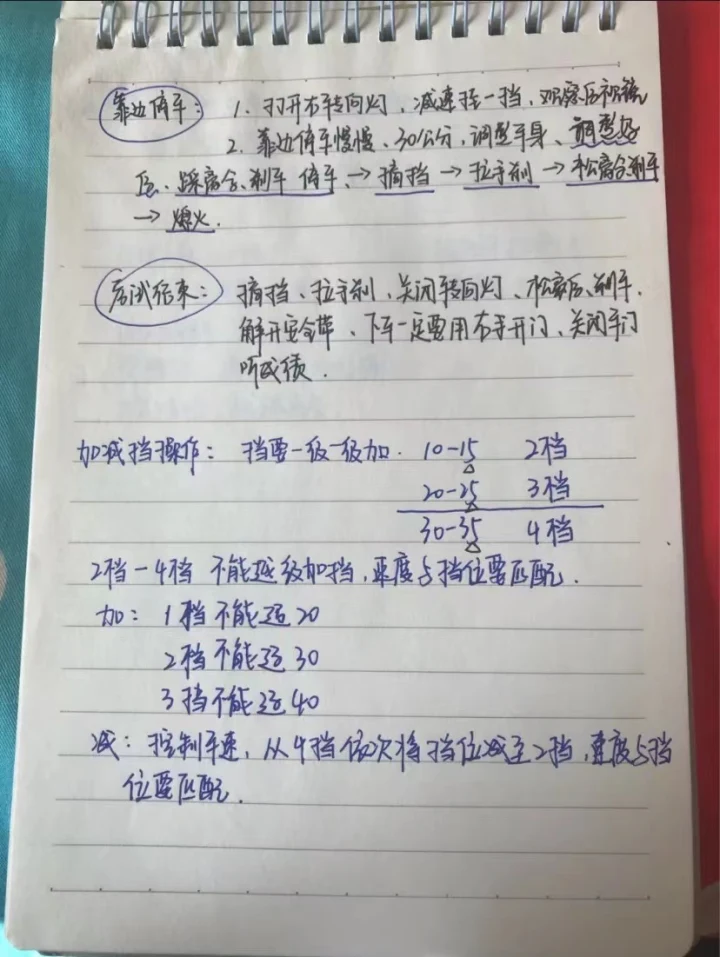 靠边停车: 1. 打开右转向灯、减速至一挡、观察后视镜
2. 靠边停车慢慢、30公分、调整车身、调整好
后、踩离合、刹车 停车、→ 摘挡 → 拉手刹 → 松离合、刹车
→ 熄火.
考试结束: 摘挡、拉手刹、关闭转向灯、松离合、刹车.
解开安全带、下车一定要用右手开门、关闭车门
听成绩.
加减挡操作: 挡要一级一级加. 10-15 2档
20-25 3档
30-35 4档
2档-4档 不能越级加挡,速度与挡位要匹配.
加: 1档不能超20
2档不能超30
3挡不能超40
减: 控制车速,从4挡依次将挡位减至2挡,速度与挡
位要匹配.